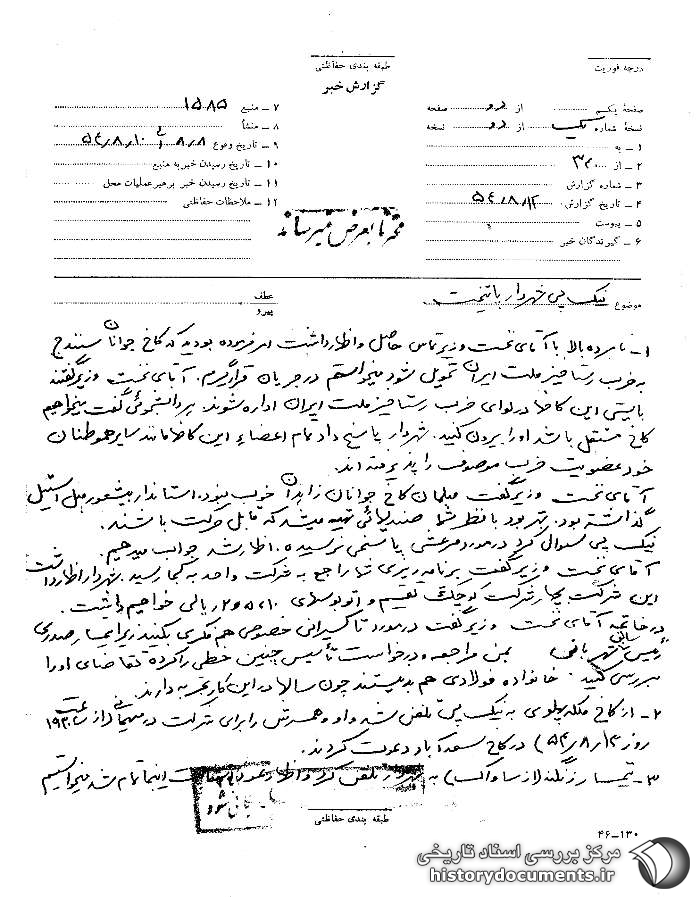 درجه فوریت
طبقه بندی حفاظتی
گزارش خبر
صفحهٔ یکم از دو صفحه
نسخهٔ شماره یک از دو نسخه
۱ ـ به
۲ ـ از ۳۲۰
۳ ـ شماره گزارش
۴ ـ تاریخ گزارش ۵۴/۸/۱۲
۵ ـ پیوست
۶ ـ گیرندگان خبر
۷ ـ منبع ۱۵۸۵
۸ ـ منشأ
۹ ـ تاریخ وقوع ۸/۸ الی ۵۴/۸/۱۰
۱۰ ـ تاریخ رسیدن خبر به منبع
۱۱ ـ تاریخ رسیدن خبر برهبر عملیات محل
۱۲ ـ ملاحظات حفاظتی
محترماً بعرض میرساند
موضوع نیک پی شهردار پایتخت
عطف
پیرو
۱ـ نامبرده بالا با آقای نخست وزیر تماس حاصل و اظهار داشت امر فرموده بودید که کاخ جوانان سنندج
به حزب رستاخیز ملت ایران تحویل شود میخواستم در جریان قرار گیرم. آقای نخست وزیر گفتند
بایستی این کاخها در لوای حزب رستاخیز ملت ایران اداره شوند. هر دانشجوئی گفت میخواهیم
کاخ مستقل باشد او را بیرون کنید. شهردار پاسخ داد تمام اعضاء این کاخها مانند سایر هموطنان
خود عضویت حزب موصوف را پذیرفته اند.
آقای نخست وزیر گفت مبلمان کاخ جوانان زاهدان خوب نبود. استاندار بیشعور مبل استیل
گذاشته بود. بهتر بود با نظر شما صندلیهائی تهیه میشد که قابل حرکت باشند.
نیک پی سئوال کرد در مورد مرعشی پاسخی نرسیده. اظهار شد جواب میدهیم.
آقای نخست وزیر گفت برنامه ریزی شما راجع به شرکت واحد به کجا رسید. شهردار اظهار داشت
این شرکت بچهار شرکت کوچک تقسیم و اتوبوسهای ۱۰، ۵ و ۲ ریالی خواهیم داشت.
در خاتمه آقای نخست وزیر گفت در مورد تاکسیرانی خصوصی هم فکری بکنید زیرا تیمسار صدری
رئیس شهربانی سابق بمن مراجعه و درخواست تأسیس چنین خطی را کرده تقاضای او را
بررسی کنید. خانواده فولادی هم بد نیستند چون سالها در این کار تجربه دارند.
۲ـ از کاخ ملکه پهلوی به نیک پی تلفن شد و او و همسرش را برای شرکت در میهمانی از ساعت ۱۹۳۰
روز ۵۴/۸/۱۳ در کاخ سعدآباد دعوت کردند.
۳ـ تیمسار رزمگه (از ساواک) به شهردار تلفن کرد و اظهار نمود اینجا تمام شد میخواستیم
طبقه بندی حفاظتی
۴۶-۱۳۰
مرکز بررسی اسناد تاریخی
historydocuments.ir